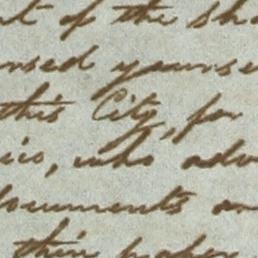 t of the sh
nsed yourse
this City, for
ico, who adv
documents an
their paper